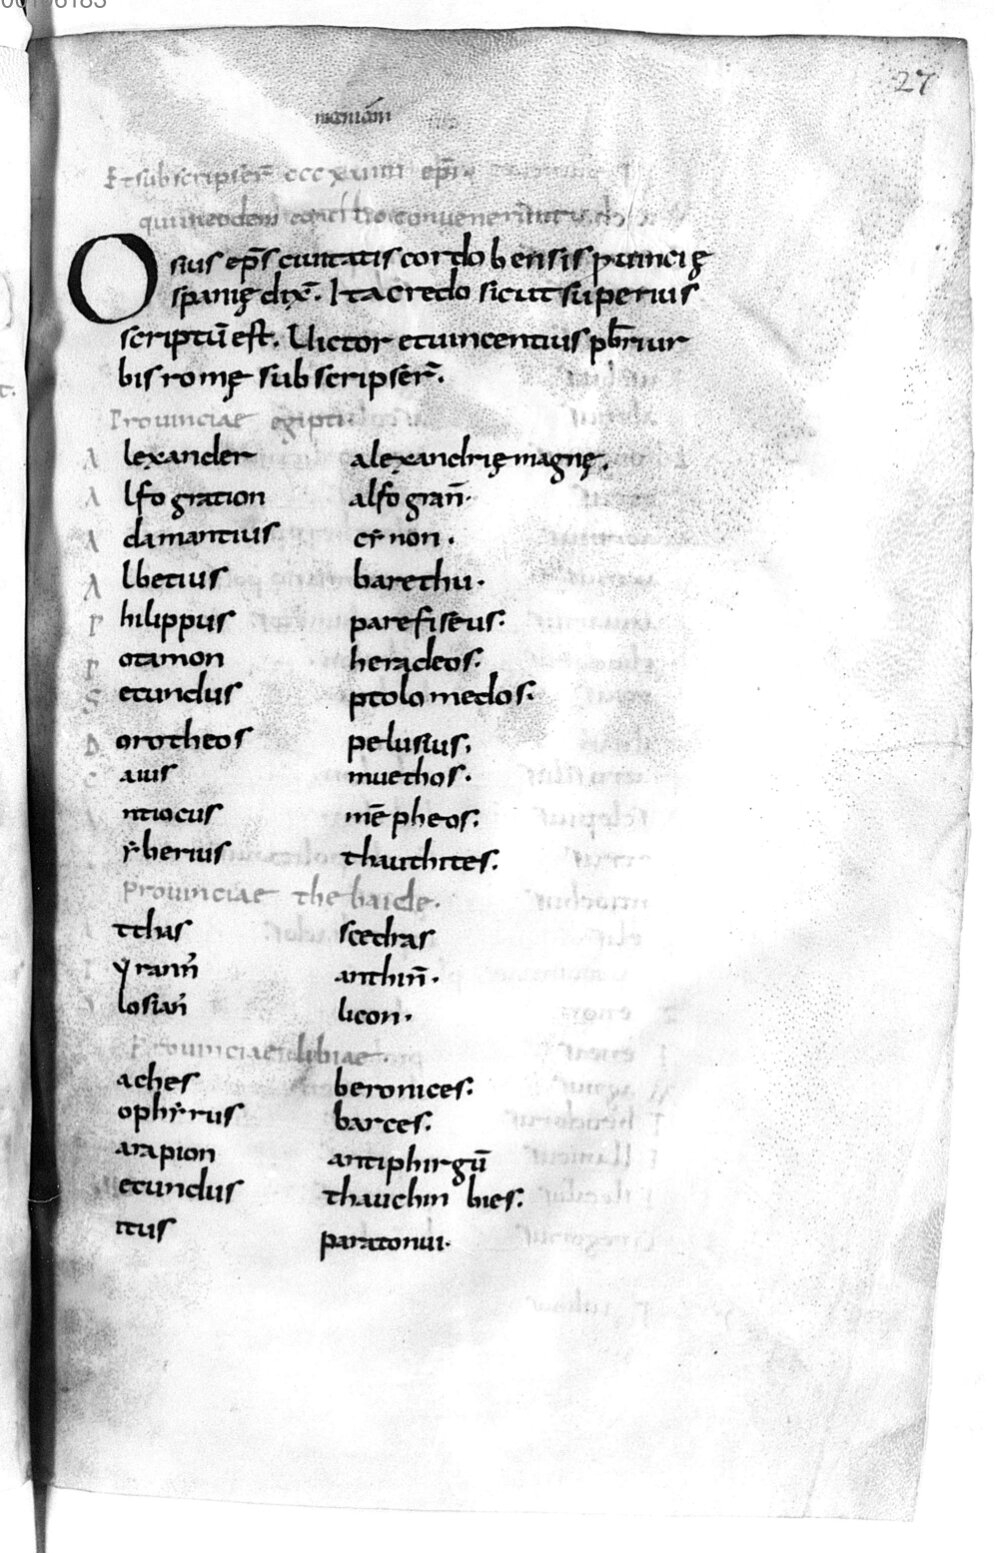 27
Et subscripser̄ cccxuiiii ep̄i
qui in eodem concilio conuenerunt
Osius ep̄s ciuitatis cordobensis prouincię
spanię dix̄. Ita credo sicut superius
scriptū est. Uictor et uincentius pb̄ri ur
bis romę subscripser̄.
Prouinciae egipti.
Alexander alexandrię magnę.
Alfogration alfogran̄.
Adamantius cẏnon.
Albetius barethu.
Philippus parefiseus:
Potamon heracleos:
Secundus ptolomedos:
Dorotheos pelusius,
Gaius muethos.
Antiocus mēpheos:
ẏberius thauthites:
Prouinciae thebaide.
ttclus scedras
ẏrann̄ anthin̄.
losian̄ licon.
Prouinciae libiae
aches beronices:
ophẏrus barces:
arapion antiphirgū
ecundus thauchin bies:
itus paratonui.